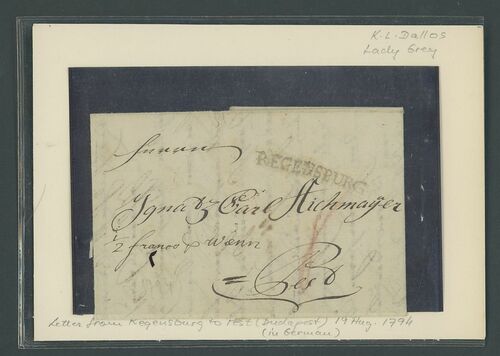 K. L. Dallos
Lady Grey
Herrn
REGENSBURG
Ignatz Carl Aichmayer
1/2 franco Wienn
= Pest
Letter from Regensburg to Pest (Budapest) 19 Aug. 1794
(in German)